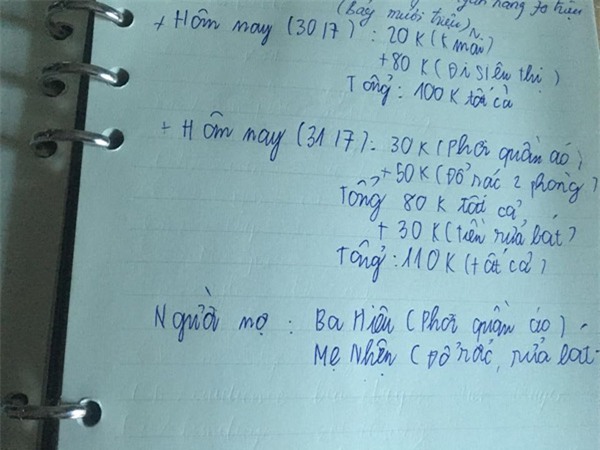 ngân hàng 70 triệu
(Bảy mươi triệu)
+ Hôm nay (30/7): 20 K (
+80 K (Đi siêu thị)
Tổng: 100 K tất cả
+ Hôm nay (31/7): 30 K (Phơi quần áo)
+50 K (Đổ rác 2 phòng)
Tổng 80 K tất cả
+ 30 K (tiền rửa bát)
Tổng: 110 K (tất cả)
Người nợ: Ba Hiếu (Phơi quần áo)
Mẹ Nhện (Đổ rác, rửa bát